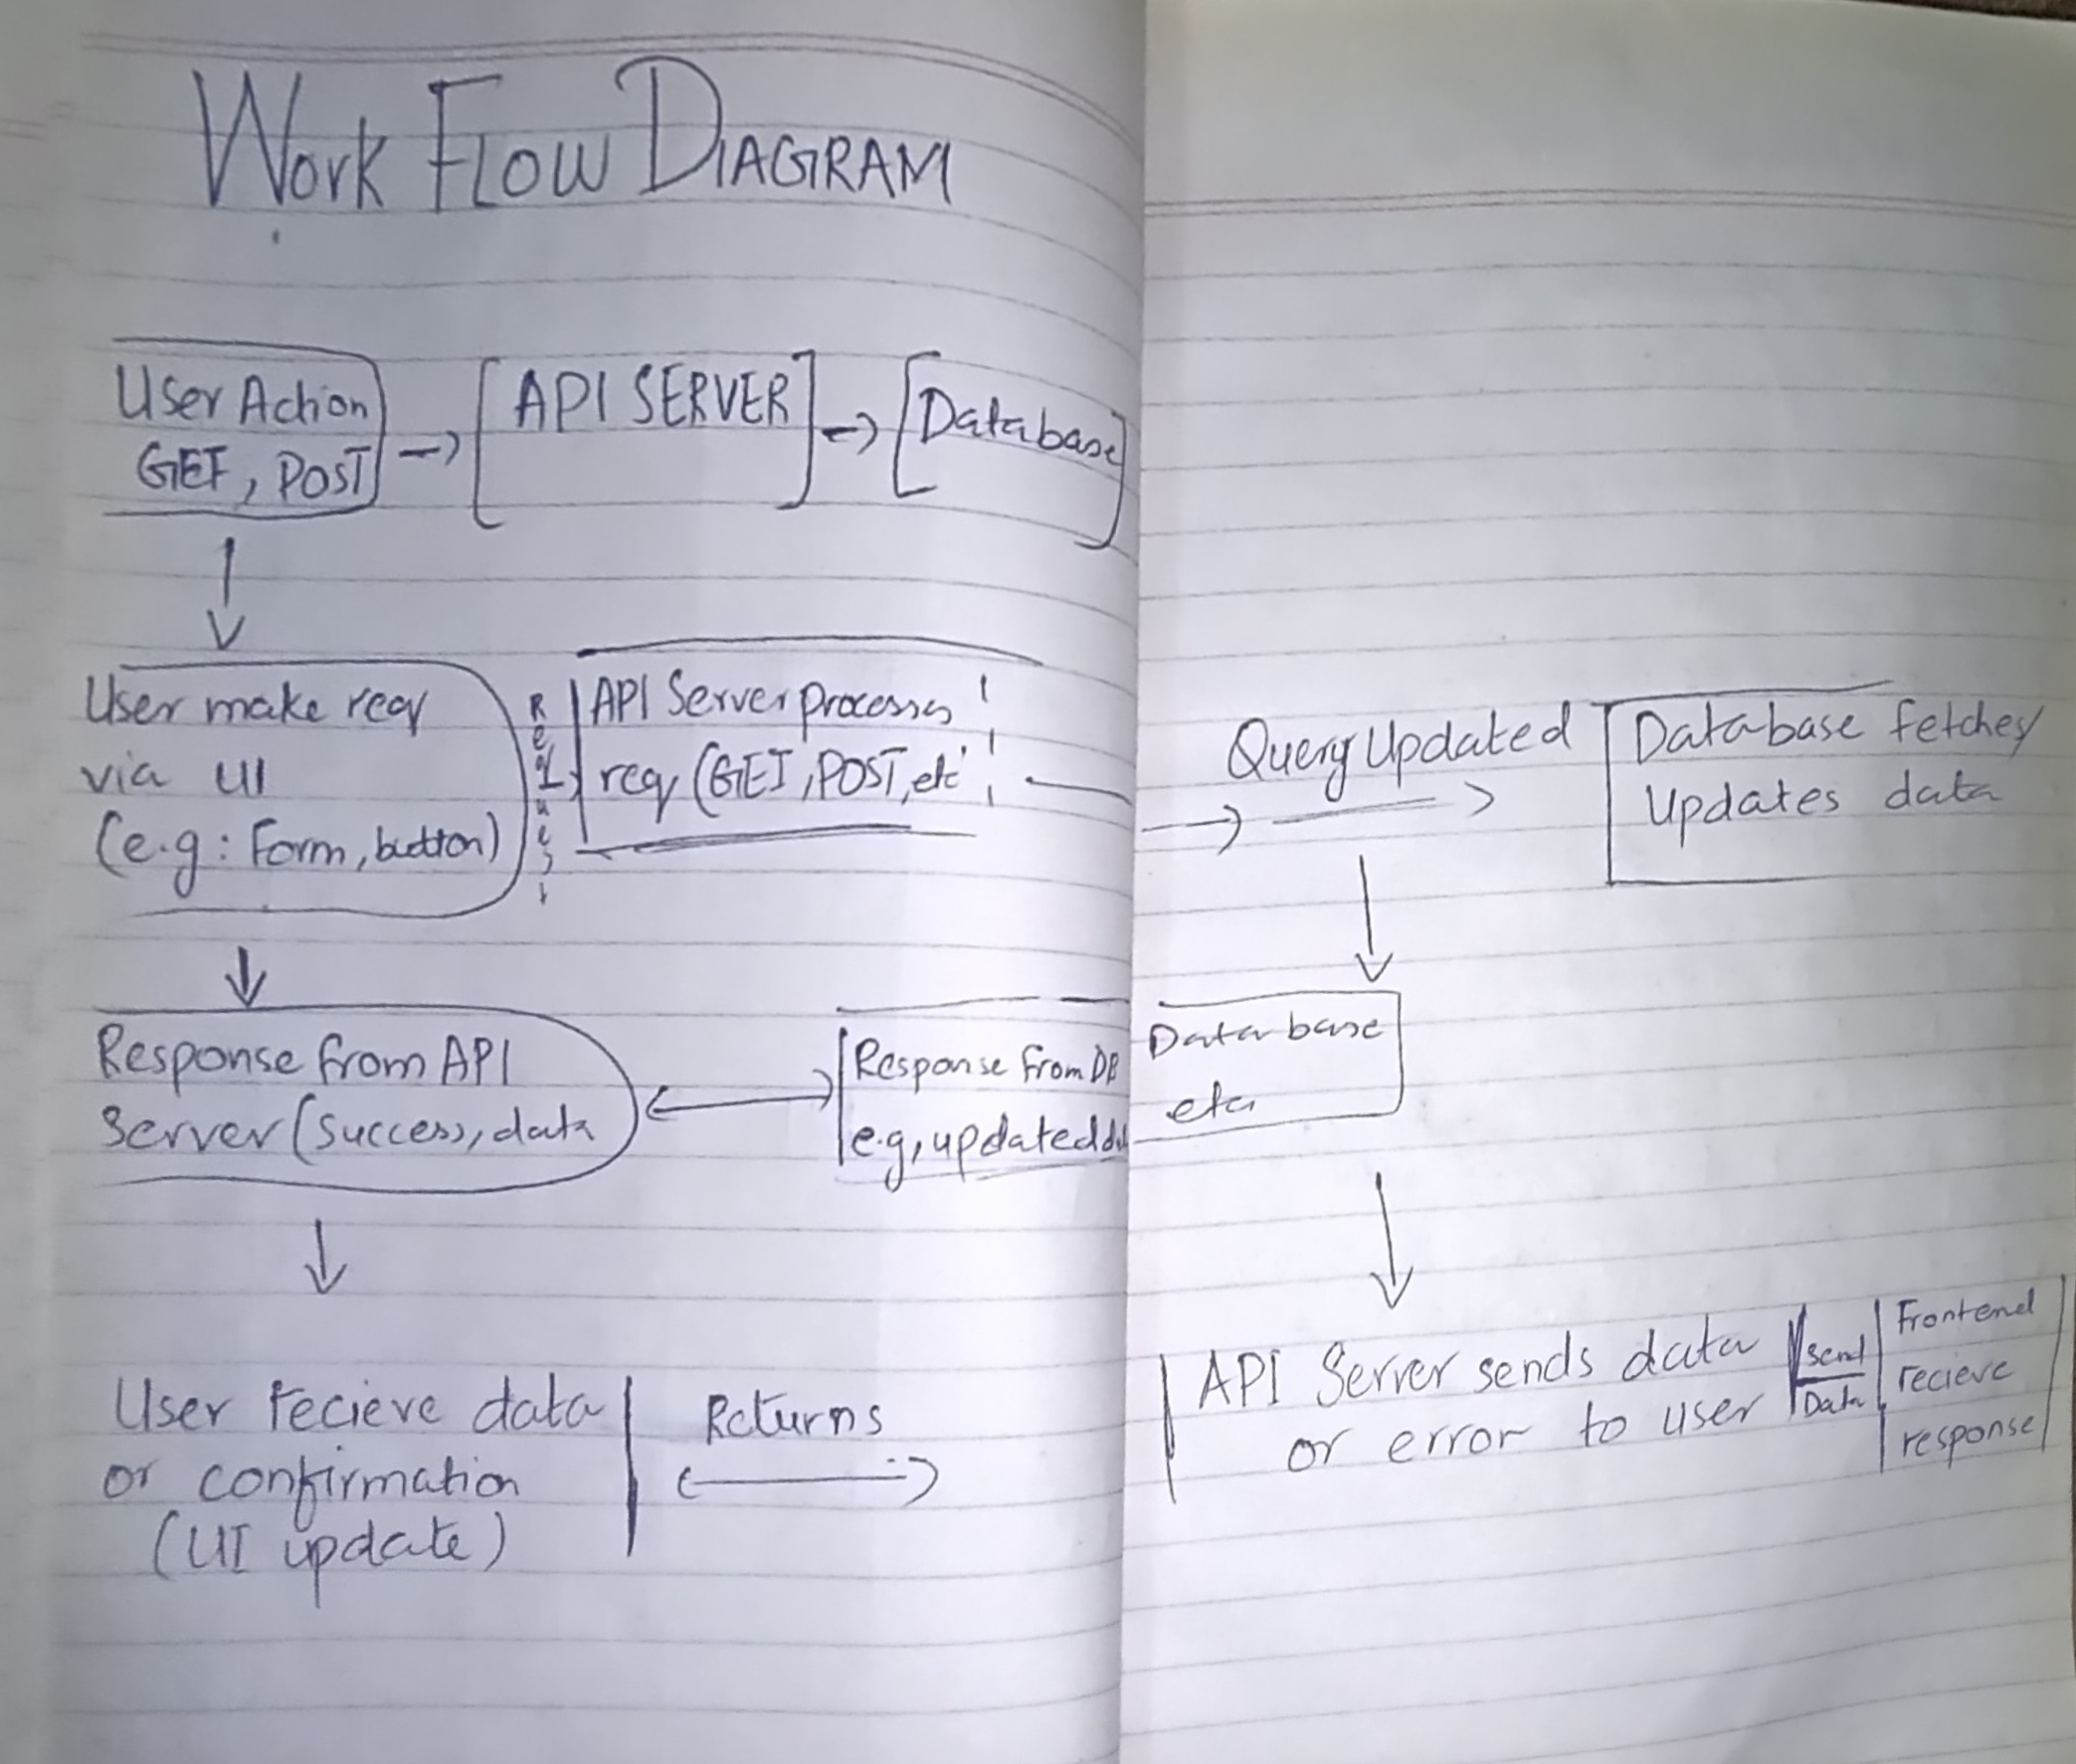 Work Flow Diagram
User Action
GET, POST
API SERVER
Database
User make req
via UI
(e.g: Form, button)
Request
API Server processes
req (GET, POST, etc
Query Updated
Database fetches
Updates data
Response from API
Server (success, data
Response from DB
e.g, updated
Database
etc
User recieve data
or confirmation
(UI update)
Returns
API Server sends data
or error to user
send
Data
Frontend
recieve
response